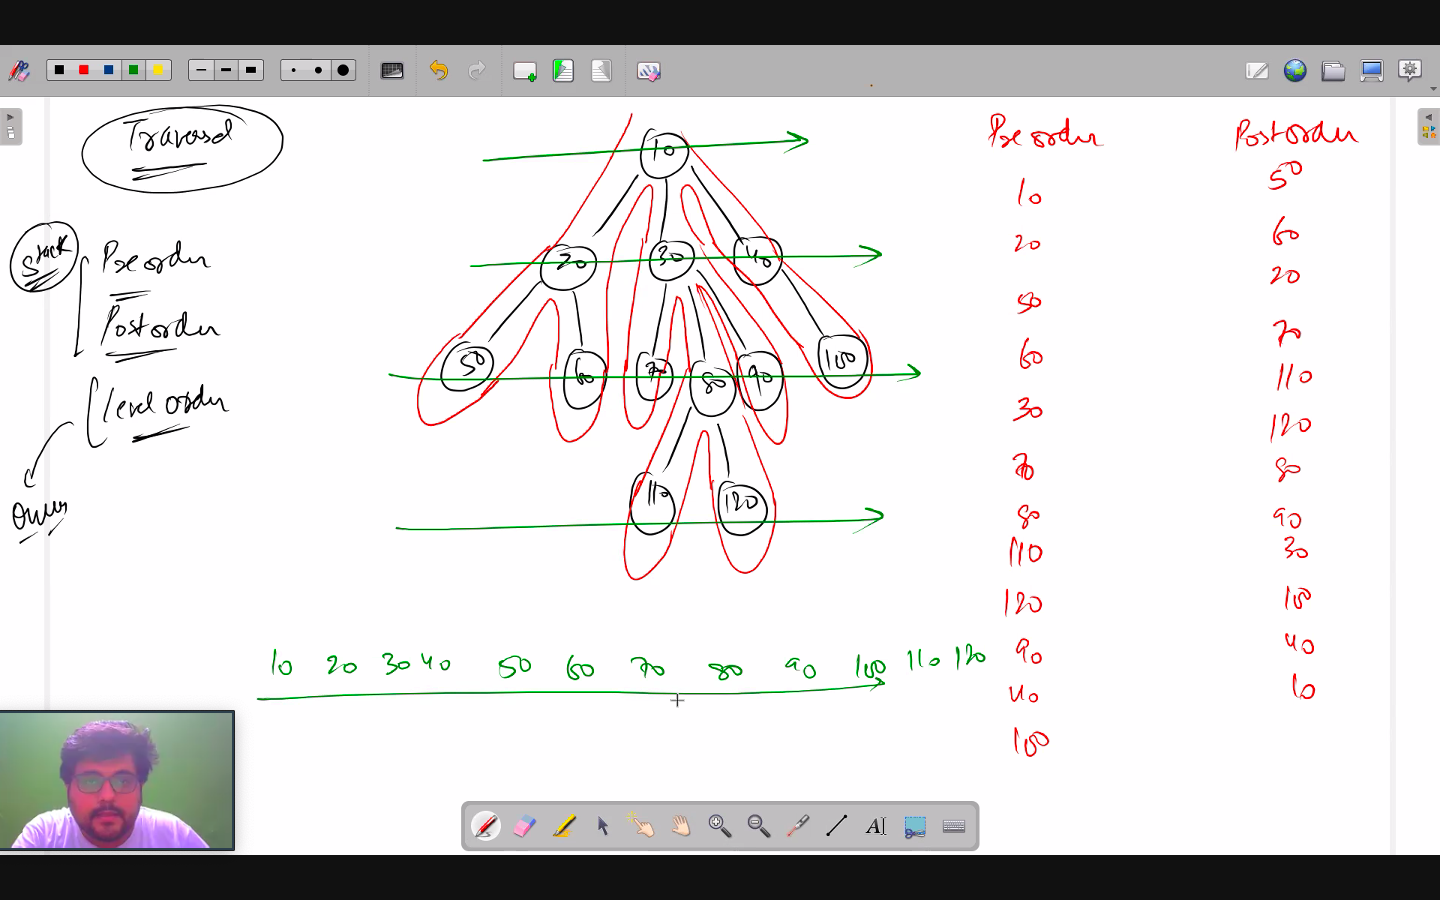 Traversal
Stack
Preorder
Postorder
level order
Queue
10
20 30 40
50 60 70 80 90 100
110 120
10 20 30 40 50 60 70 80 90 100 110 120
Preorder
10
20
50
60
30
70
80
110
120
90
40
100
Postorder
50
60
20
70
110
120
80
90
30
100
40
10